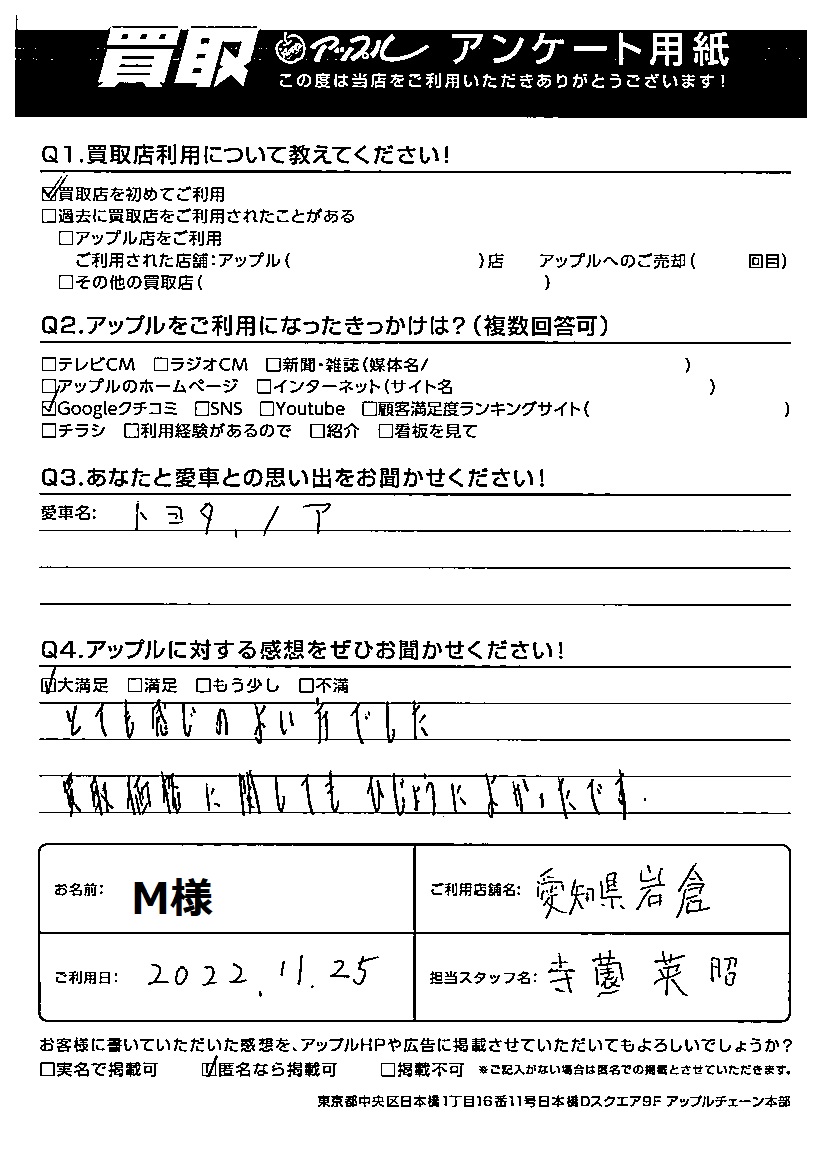 買取 アップル アンケート用紙
この度は当店をご利用いただきありがとうございます!
Q1.買取店利用について教えてください!
☑買取店を初めてご利用
□過去に買取店をご利用されたことがある
□アップル店をご利用
ご利用された店舗:アップル( )店 アップルへのご売却( 回目)
□その他の買取店( )
Q2.アップルをご利用になったきっかけは?(複数回答可)
□テレビCM □ラジオCM □新聞・雑誌(媒体名/ )
□アップルのホームページ □インターネット(サイト名 )
☑Googleクチコミ □SNS □Youtube □顧客満足度ランキングサイト( )
□チラシ □利用経験があるので □紹介 □看板を見て
Q3.あなたと愛車との思い出をお聞かせください!
愛車名: トヨタ、ノア
Q4.アップルに対する感想をぜひお聞かせください!
☑大満足 □満足 □もう少し □不満
とても感じのよい方でした
買取価格に関してもひじょうによかったです.
お名前: M様 ご利用店舗名: 愛知県岩倉
ご利用日: 2022.11.25 担当スタッフ名: 寺薗 英昭
お客様に書いていただいた感想を、アップルHPや広告に掲載させていただいてもよろしいでしょうか?
□実名で掲載可 ☑匿名なら掲載可 □掲載不可 ※ご記入がない場合は匿名での掲載とさせていただきます。
東京都中央区日本橋1丁目16番11号日本橋Dスクエア9F アップルチェーン本部